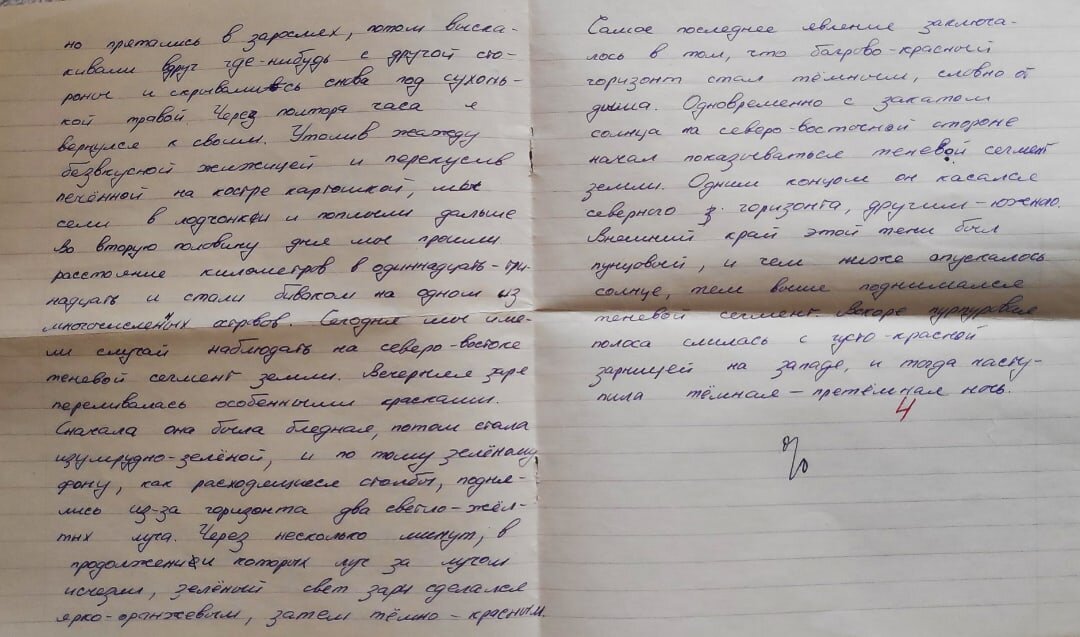 но прятались в зарослях, потом выска-
кивали вдруг где-нибудь с другой сто-
роны и скрывались снова под сухонь-
кой травой. Через полтора часа я
вернулся к своим. Утолив жажду
безвкусной жижицей и перекусив
печённой на костре картошкой, мы
сели в лодчонки и поплыли дальше
Во вторую половину дня мы прошли
расстояние километров в одиннадцать-три-
надцать и стали биваком на одном из
многочисленных островов. Сегодня мы име-
ли случай наблюдать на северо-востоке
теневой сегмент земли. Вечерняя заря
переливалась особенными красками.
Сначала она была бледная, потом стала
изумрудно-зелёной, и по тому зелёному
фону, как расходящиеся столбы, подня-
лись из-за горизонта два светло-жёл-
тых луча. Через несколько минут, в
продолжении которых луч за лучом
исчезли, зелёный свет зари сделался
ярко-оранжевым, затем тёмно-красным.
Самое последнее явление заключа-
лось в том, что багрово-красный
горизонт стал тёмным, словно от
дыма. Одновременно с закатом
солнца на северо-восточной стороне
начал показываться теневой сегмент
земли. Одним концом он касался
северного з. горизонта, другим-южного.
Внешний край этой тени был
пунцовый, и чем ниже опускалось
солнце, тем выше поднимался
теневой сегмент. Вскоре пурпуровая
полоса слилась с густо-красной
зарницей на западе, и тогда насту-
пила тёмная-претёмная ночь.
4